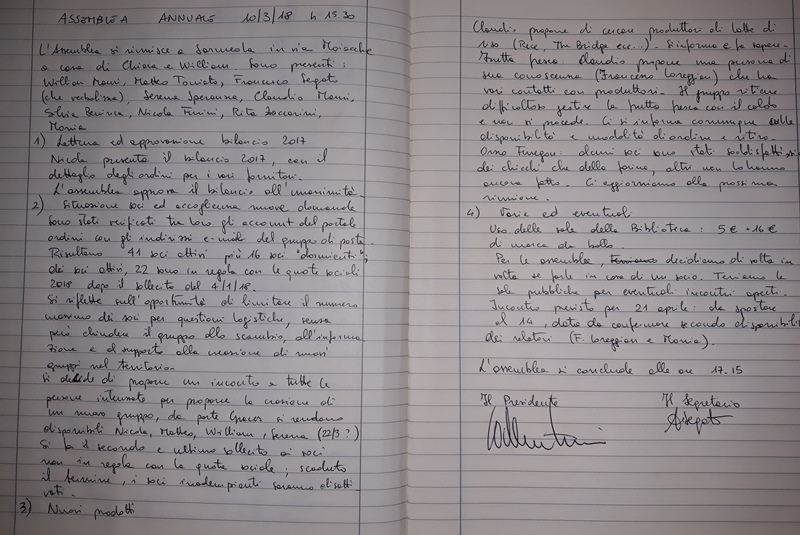 ASSEMBLEA ANNUALE 10/3/18 h 15.30
L'Assemblea si riunisce a Sarmeola in via
a casa di Chiara e William. Sono presenti:
William Mani, Matteo Toniato, Francesco Segato
(che verbalizza), Serena Speranza, Claudio Mani,
Silvia Nicola Furini, Rita Zaccarini,
Monia
1) Lettura ed approvazione bilancio 2017
Nicola presenta il bilancio 2017, con il
dettaglio degli ordini per i vari fornitori.
L'assemblea approva il bilancio all'unanimità.
2) Situazione soci ed accoglienza nuove domande
Sono stati verificati tra loro gli account del portale
ordini con gli indirizzi e-mail del gruppo di posta.
Risultano 41 soci attivi più 16 soci "dormienti";
dei soci attivi, 22 sono in regola con le quote sociali
2018 dopo il sollecito del 4/1/18.
Si riflette sull'opportunità di limitare il numero
massimo dei soci per questioni logistiche, senza
però chiudere il gruppo allo scambio, all'informa
zione e al supporto alla creazione di nuovi
gruppi nel territorio.
Si decide di proporre un incontro a tutte le
persone interessate per proporre la creazione di
un nuovo gruppo, da parte si rendono
disponibili Nicola, Matteo, William, Serena (22/3?)
Si fa il secondo e ultimo sollecito ai soci
non in regola con la quota sociale; scaduto
il termine, i soci inadempienti saranno disatti
vati.
3) Nuovi prodotti
Claudio propone di cercare produttori di latte di
riso (Rice, The Bridge ecc...). Si informa e fa sapere.
Frutta fresca: Claudio propone una persona di
sua conoscenza (Francesco Loreggian) che ha
vari contatti con produttori. Il gruppo ritiene
difficoltoso gestire la frutta fresca con il caldo
e non si procede. Ci si informa comunque sulle
disponibilità e modalità di ordine e ritiro.
Orzo alcuni soci sono stati soddisfatti sia
dei chicchi che della farina, altri non lo hanno
ancora fatto. Ci aggiorniamo alla prossima
riunione.
4) Varie ed eventuali
Uso delle sale della Biblioteca: 5 € + 16 €
di marca da bollo.
Per le assemblee, decidiamo di volta in
volta se farle in casa di un socio. Teniamo le
sale pubbliche per eventuali incontri aperti.
Incontro previsto per 21 aprile: da spostare
al 14, data da confermare secondo disponibilità
dei relatori (F. Loreggian e Monia).
L'assemblea si conclude alle ore 17.15
Il Presidente Il Segretario